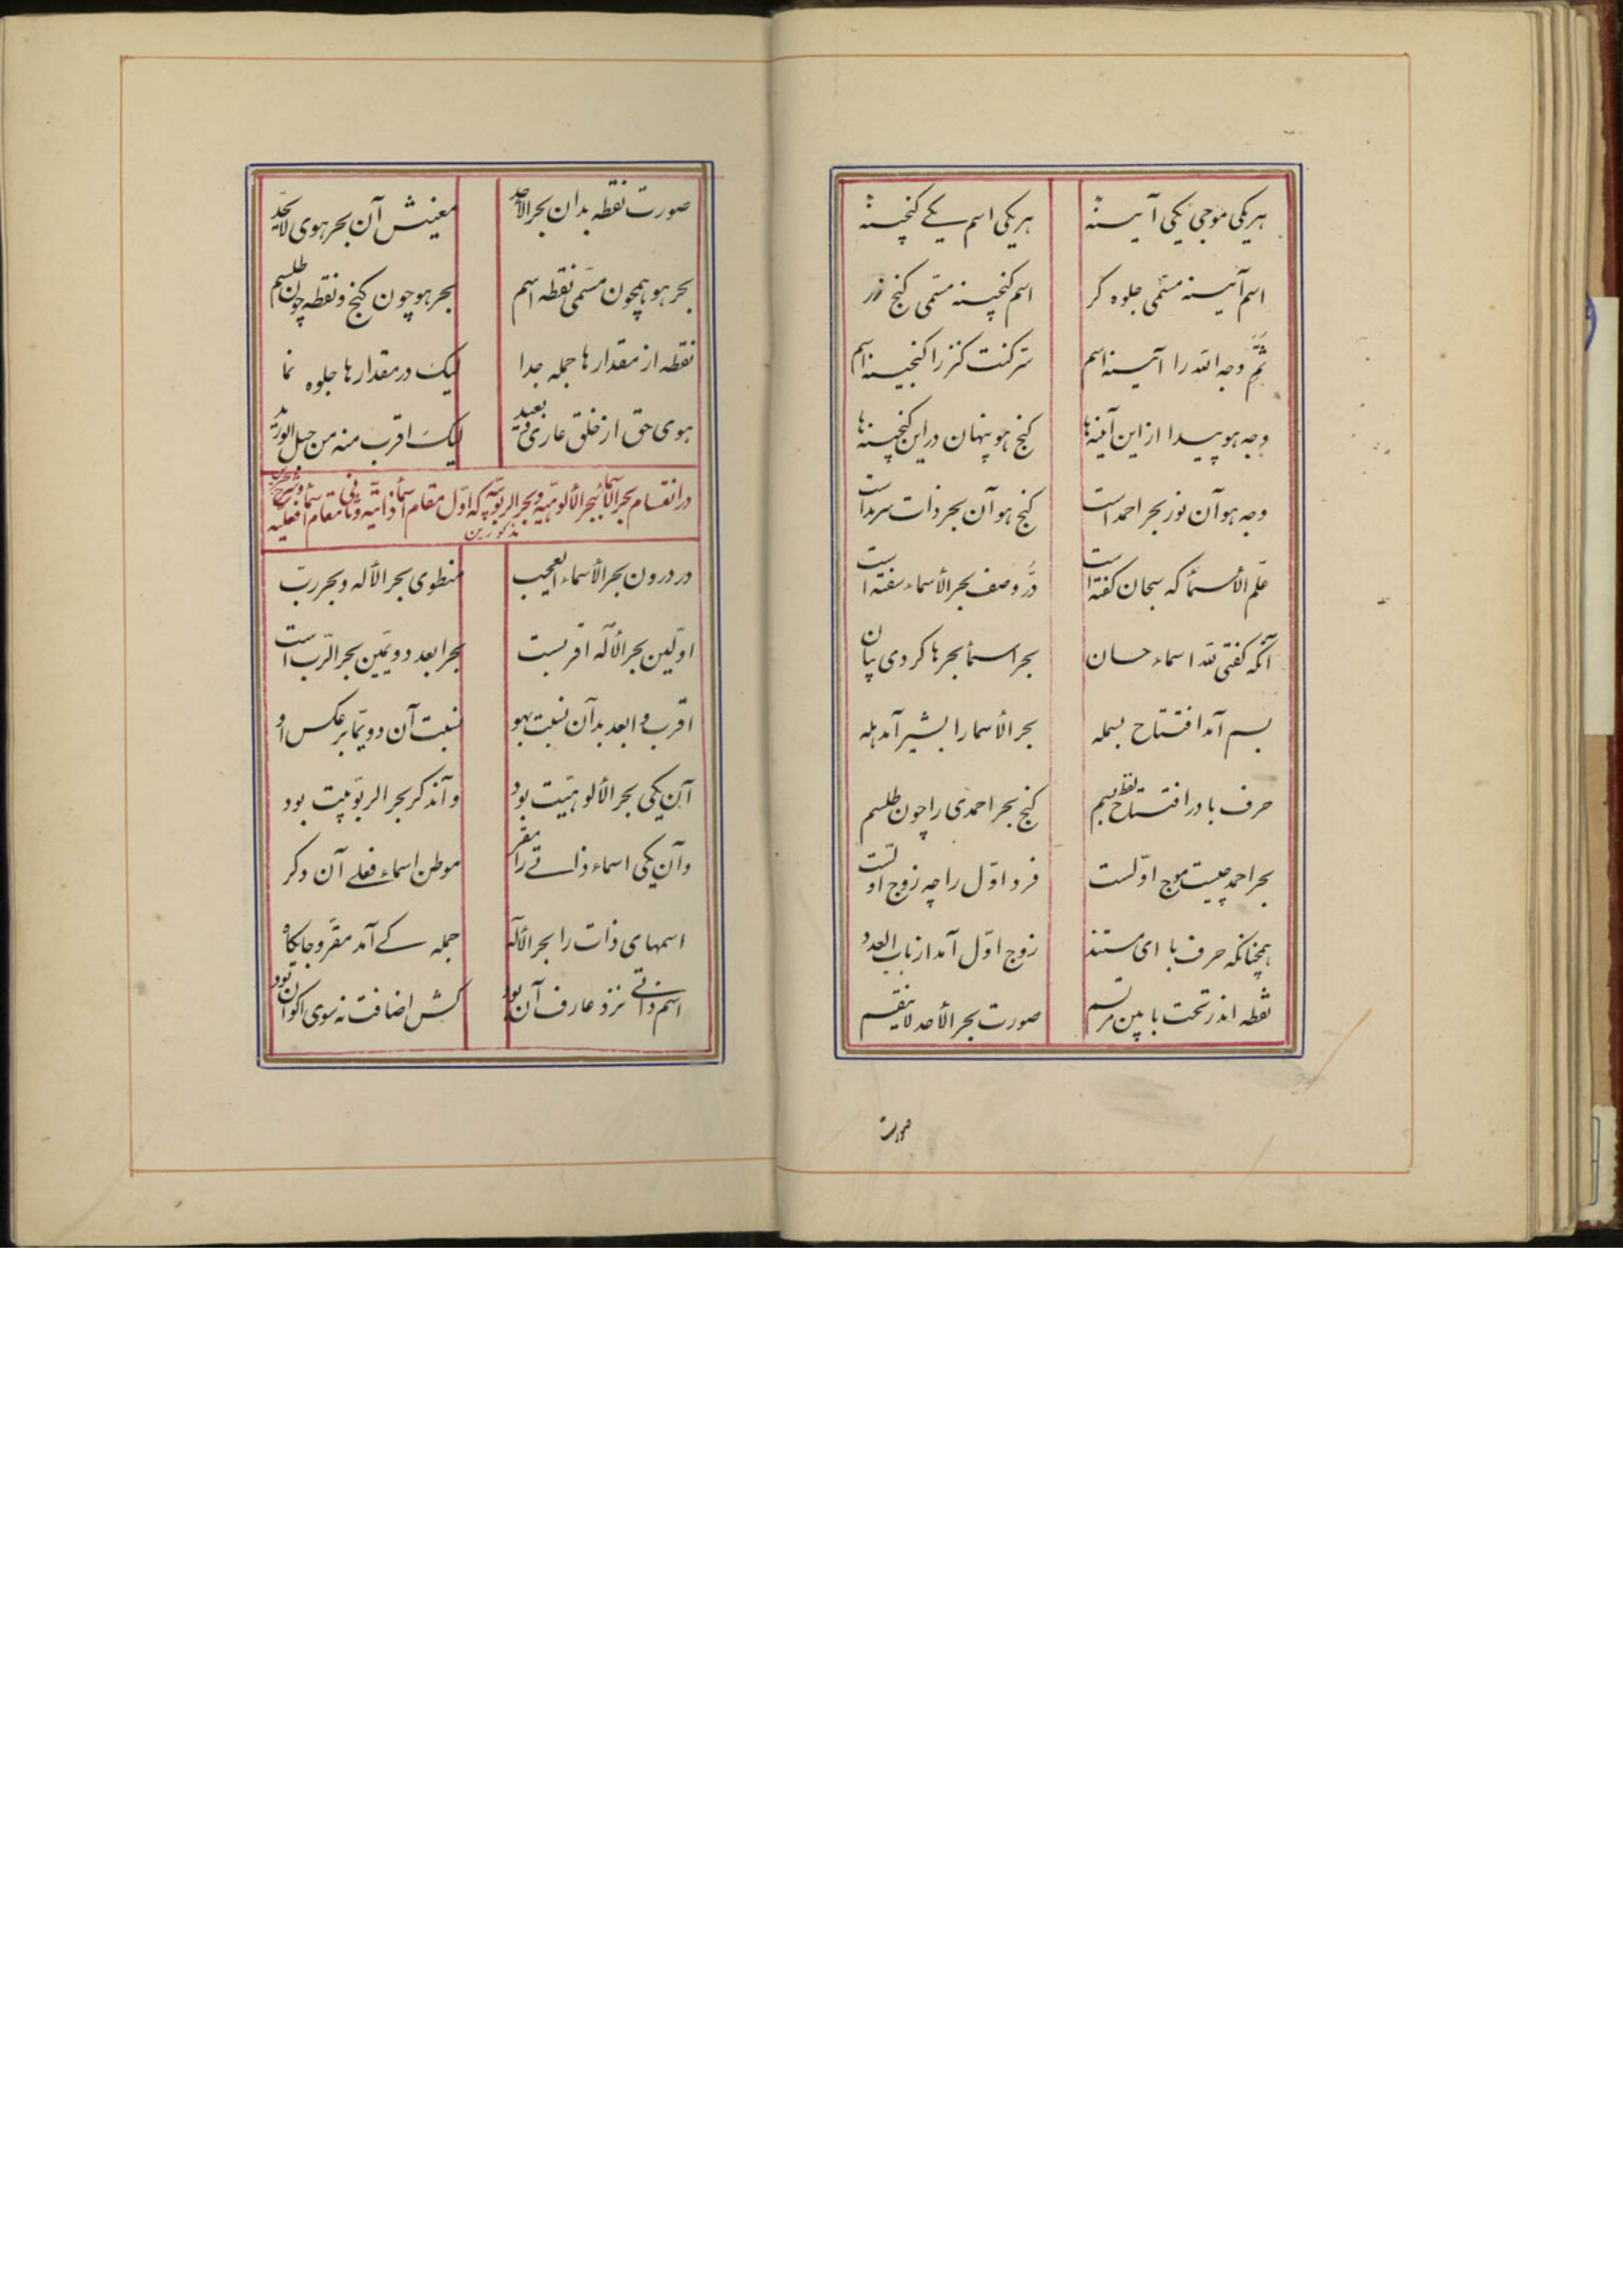 هر یکی موجی یکی آیینه هر یکی اسم یکے کنجینه
اسم آیینه مسمّی جلوه کر اسم کنجینه مسمّی کنج زر
ثَمَّ وجه اللّه را آیینه اسم سرّ کنت کنز را کنجینه اسم
وجه هو پیدا ازین آئینه‌ها کنج هو پنهان در این کنجینه‌ها
وجه هو آن نور بحر احمد است کنج هو آن بحر ذات سرمد است
علّم الأسمأ که سبحان کفته است دُر وصف بحر الأسماء سفته است
آنکه کفتی للّه اسماء حسان بحر اسمأ بحرها کردی بیان
بسم آمد افتتاح بسمله بحر الاسما را بشیر آمد هله
حرف با در افتتاح لفظ بسم کنج بحر احمدی را چون طلسم
بحر احمد چیست موج اوّلست فرد اوّل را چه زوج اوّلست
همچنانکه حرف با ای مستند زوج اوّل آمد از باب العدد
نقطه اندر تحت با بین مرتسم صورت بحر الأحد لاینقسم
صورت
صورت نقطه بدان بحر الأحد معنیش آن بحر هوی لایحدّ
بحر هو همچون مسمّی نقطه اسم بحر هو چون کنج و نقطه چون طلسم
نقطه از مقدارها جمله جدا لیک در مقدارها جلوه نما
هوی حق از خلق عاری و بعید لیک اقرب منه من حبل الورید
در انقسام بحر الأسمأ ببحر الألوهیّه و بحر الربوبیّه که اوّل مقام اسمأ ذاتیّه و ثانی مقام اسمأ فعلیه و شرح بحرین
مذکورین
در درون بحر الأسماء العجیب منطوی بحر الأله و بحر ربّ
اوّلین بحر الأله اقربست بحر ابعد دویّمین بحر الرّب است
اقرب و ابعد بدآن نسبت بهو نسبت آن دو بما بر عکس او
آن یکی بحر الألوهیّت بود وآندکر بحر الربوبیّت بود
وآن یکی اسماء ذاتے را مقر موطن اسماء فعلے آن دکر
اسمهای ذات را بحر الأله جمله کے آمد مقر و جایکاه
اسم ذاتے نزد عارف آن بود کش اضافت نه سوی اکوان بود